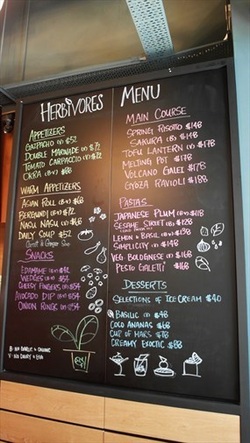 HERBIVORES
APPETIZERS
GAZPACHO $52
DOUBLE MARINADE $72
TOMATO CARPACCIO $72
OKRA $68
WARM APPETIZERS
ASIAN ROLL $68
NASU NASU $68
DAILY SOUP $52
SNACKS
EDAMAME
WEDGES
CHEESY FINGERS
AVOCADO DIP
ONION RINGS
MENU
MAIN COURSE
SPRING RISOTTO $148
SAKURA $148
TOFU LANTERN $178
MELTING POT $178
VOLCANO GALEZ $178
GYOZA RAVIOLI $188
PASTAS
JAPANESE PLUM
SESAME STREET
LEMON & BASIL
SIMPLICITY $148
VEG BOLOGNESE $168
PESTO GALETTI $168
DESSERTS
SELECTIONS OF ICE CREAM $40
BASILIC $68
COLD ANANAS $68
CUP OF MARS $78
CREAMY EXOTIC $88